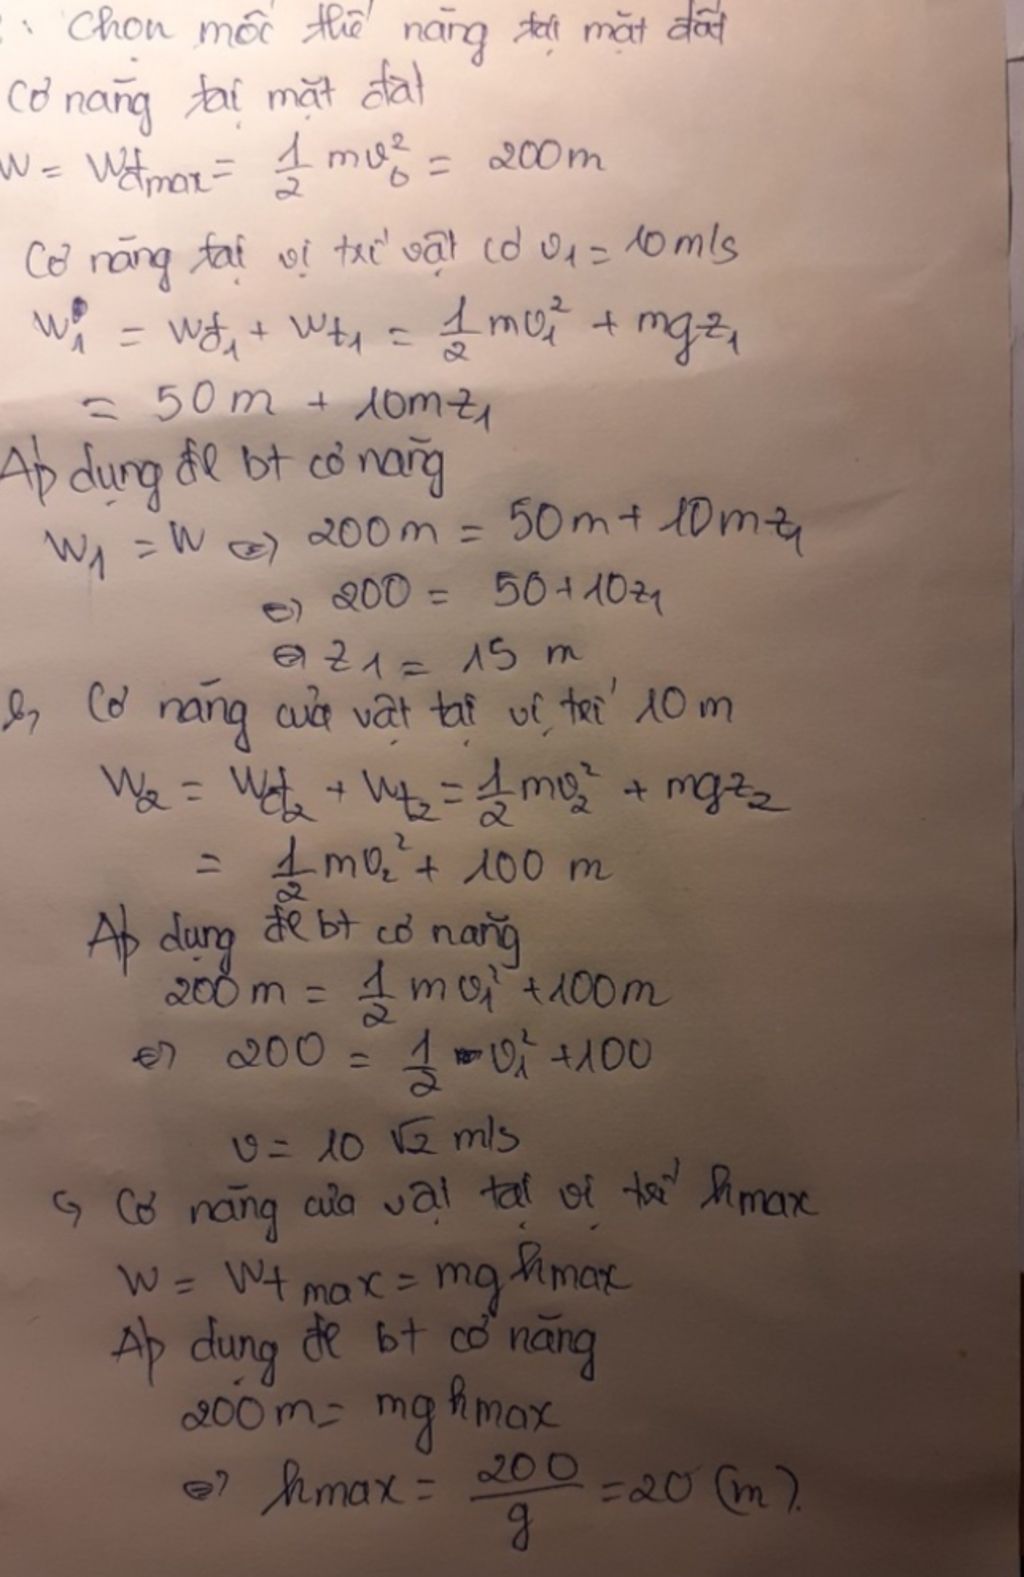 : Chọn mốc thế năng tại mặt đất
Cơ năng tại mặt đất
W = Wđmax = 1/2 mv₀² = 200m
Cơ năng tại vị trí vật có v₁ = 10m/s
W₁ = Wđ₁ + Wt₁ = 1/2 mv₁² + mgz₁
= 50m + 10mz₁
Áp dụng đl bt cơ năng
W₁ = W ⇔ 200m = 50m + 10mz₁
⇔ 200 = 50 + 10z₁
⇔ z₁ = 15 m
b, Cơ năng của vật tại vị trí 10m
W₂ = Wđ₂ + Wt₂ = 1/2 mv₂² + mgz₂
= 1/2 mv₂² + 100 m
Áp dụng đl bt cơ năng
200m = 1/2 mv₁² + 100m
⇔ 200 = 1/2 v₁² + 100
v = 10 √2 m/s
c, Cơ năng của vật tại vị trí hmax
W = Wt max = mg hmax
Áp dụng đl bt cơ năng
200m = mg hmax
⇔ hmax = 200/g = 20 (m).